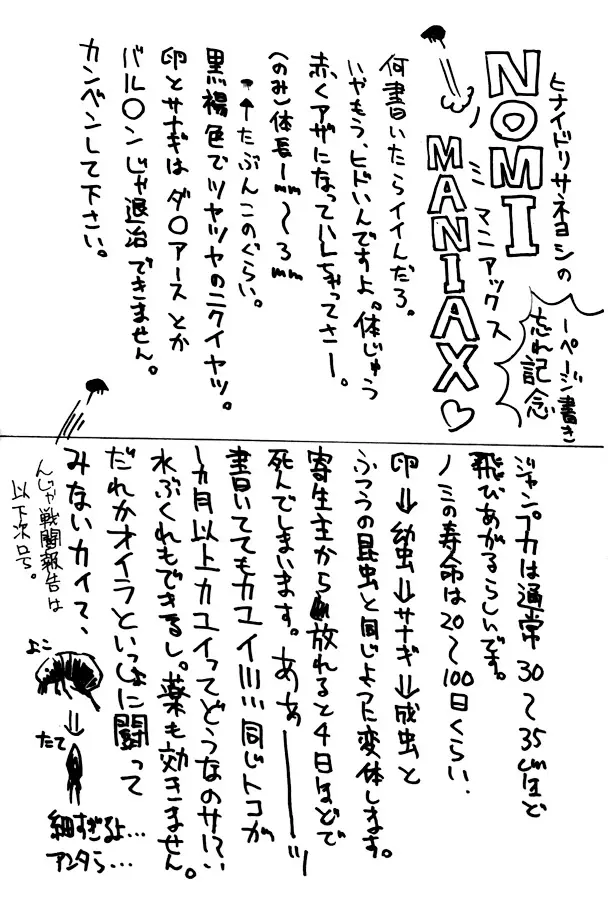 ヒナイドリサネヨシの
NOMI
ミマニアックス
MANIAX♡
1ページ書き
忘れ記念
何書いたらイイんだろ。
いやもう、ヒドいんですよ。体じゅう
赤くアザになっていしちゃってさー。
(のみ)体長1mm〜3mm
・←たぶんこのぐらい。
黒褐色でツヤツヤのニクイヤツ。
卵とサナギはダ〇アースとか
バル〇ンじゃ退治できません。
カンベンして下さい。
ジャンプ力は通常30〜35cmほど
飛びあがるらしいです。
ノミの寿命は20〜100日くらい.
卵⇒幼虫⇒サナギ⇒成虫と
ふつうの昆虫と同じように変体します。
寄生主から放れると4日ほどで
死んでしまいます。あぁーーーッ
書いててもカユイ!!!!同じトコが
1ヵ月以上カユイってどうなのサ!?
水ぶくれもできるし。薬も効きません。
だれかオイラといっしょに闘って
みないカイて、
んじゃ戦闘報告は
以下次号。
よこ
⇓
たて
細すぎるよ…
アンタら…